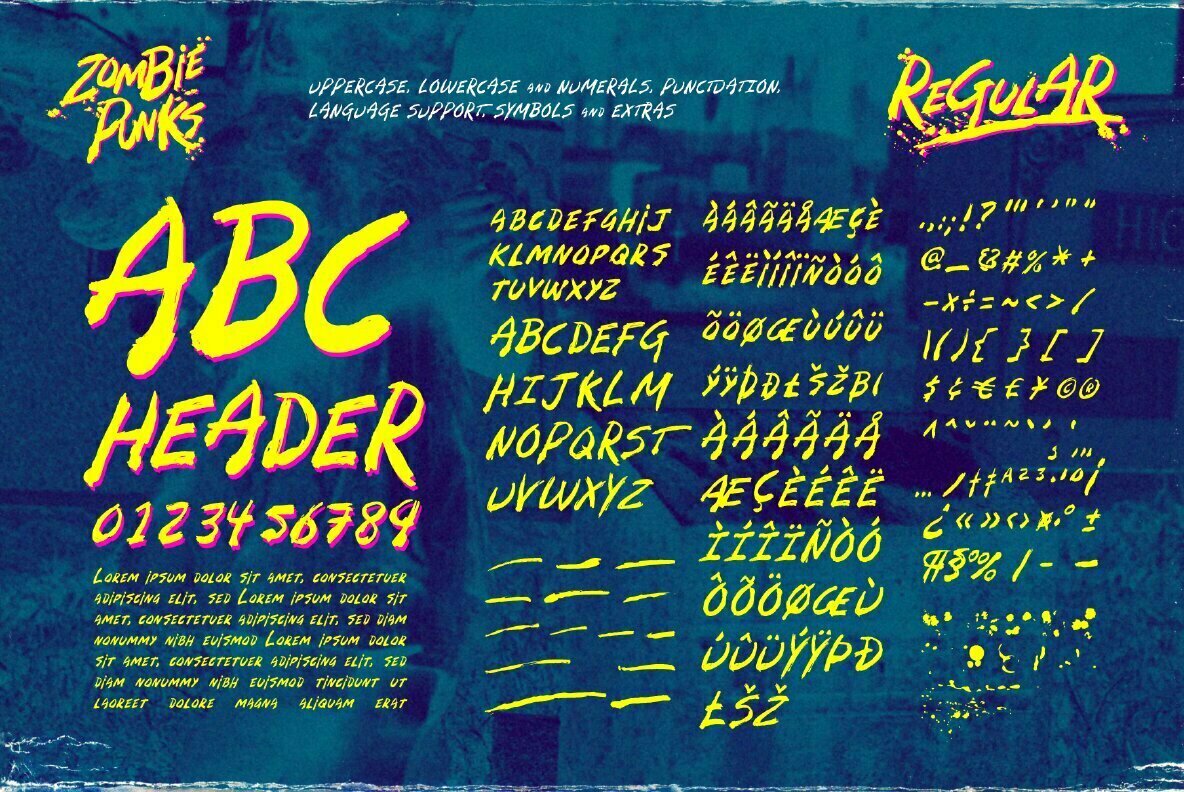 ZOMBIE
PUNKS
UPPERCASE, LOWERCASE AND NUMERALS, PUNCTUATION,
LANGUAGE SUPPORT, SYMBOLS AND EXTRAS
REGULAR
ABC
HEADER
0123456789
LOREM IPSUM DOLOR SIT AMET, CONSECTETUER
ADIPISCING ELIT, SED LOREM IPSUM DOLOR SIT
AMET, CONSECTETUER ADIPISCING ELIT, SED DIAM
NONUMMY NIBH EUISMOD LOREM IPSUM DOLOR
SIT AMET, CONSECTETUER ADIPISCING ELIT, SED
DIAM NONUMMY NIBH EUISMOD TINCIDUNT UT
LAOREET DOLORE MAGNA ALIQUAM ERAT
ABCDEFGHIJ
KLMNOPQRS
TUVWXYZ
ABCDEFG
HIJKLM
NOPQRST
UVWXYZ
ÀÁÂÃÄÅÆÇÈ
ÉÊËÌÍÎÏÑÒÓÔ
ÕÖØŒÙÚÛÜ
ÝŸÞÐŁŠŽßI
ÀÁÂÃÄÅ
ÆÇÈÉÊË
ÌÍÎÏÑÒÓ
ÔÕÖØŒÙ
ÚÛÜÝŸÞÐ
ŁŠŽ
.,:;!?"'''""
@_&#%*+
-×÷=~<>/
\|(){}[]
$¢€£¥©®
¿«»‹›¤.°±
¶§%/-–